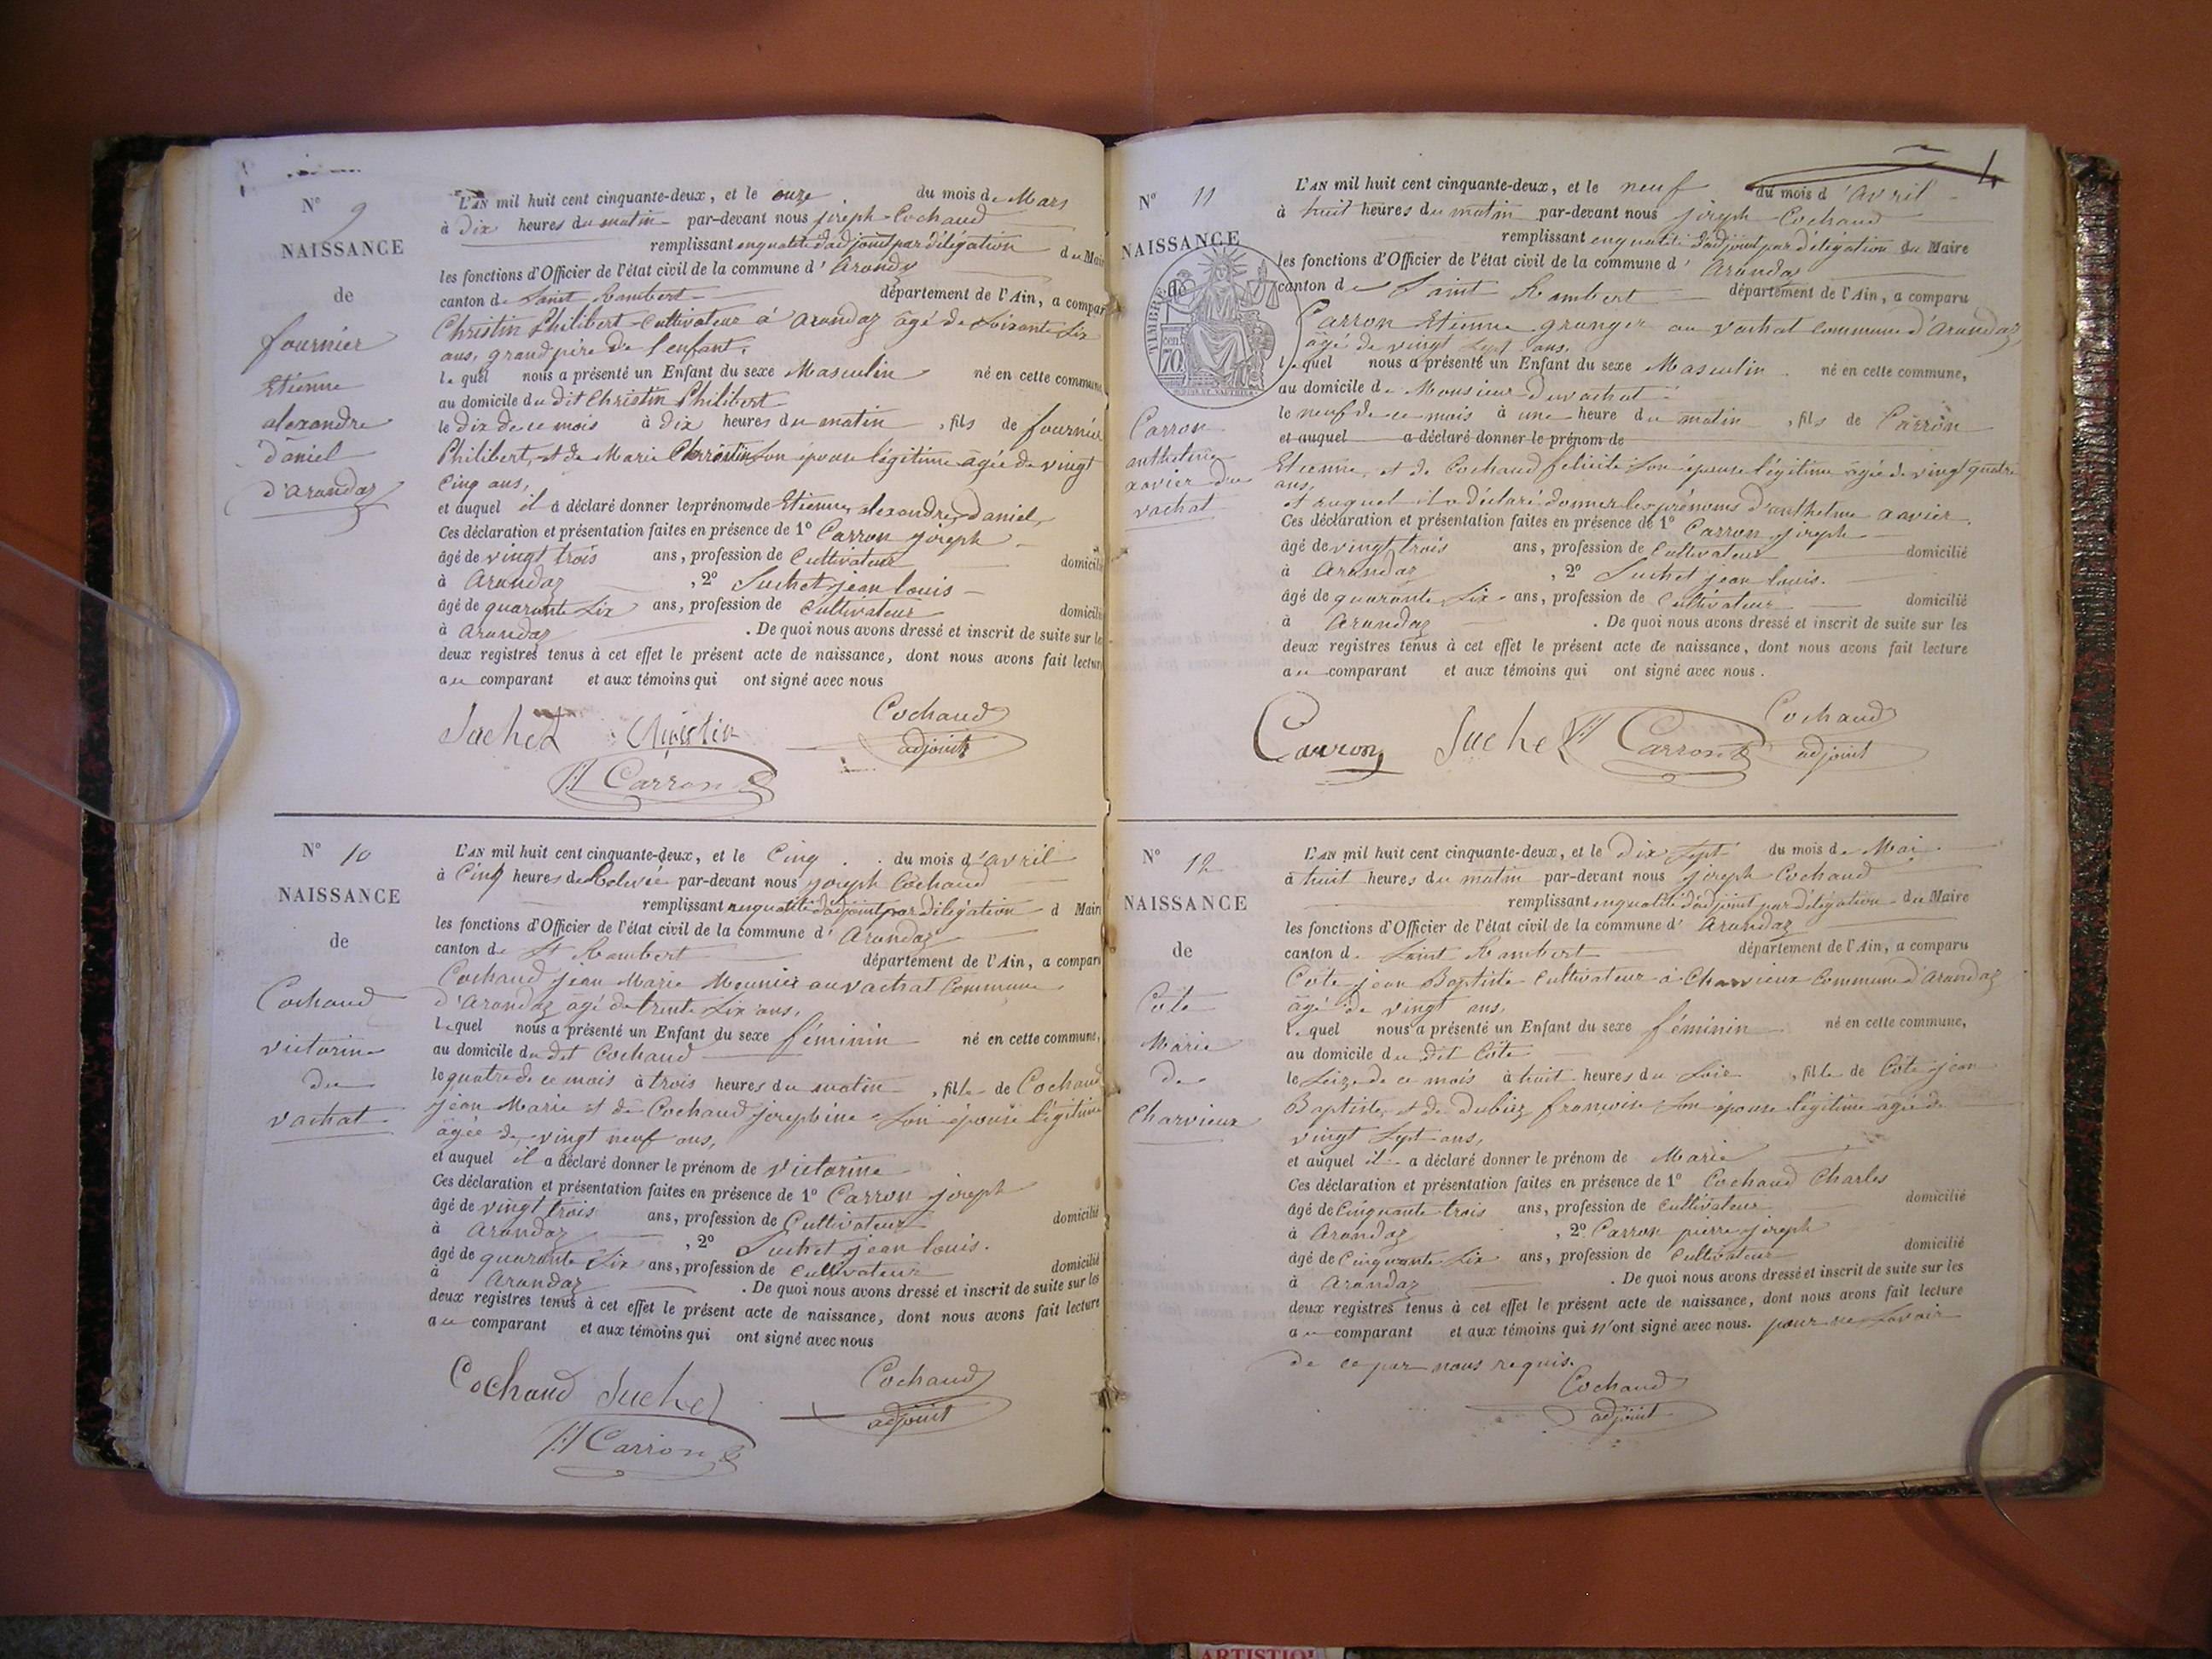 N° 9
NAISSANCE
de
fournier
Etienne
alexandre
daniel
d'arandaz
L'AN mil huit cent cinquante-deux, et le onze du mois de Mars
à Dix heures du matin par-devant nous joseph Cochaud
remplissant en qualité d'adjoint par délégation du Mair
les fonctions d'Officier de l'état civil de la commune d'
canton de Saint Rambert département de l'Ain, a compar
Christin Philibert Cultivateur à arandaz âgé de Soixante Six
ans, grand père de l'enfant.
lequel nous a présenté un Enfant du sexe Masculin né en cette commune
au domicile du dit Christin Philibert
le dix de ce mois à dix heures du matin, fils de fournier
Philibert, et de Marie Christin son épouse légitime âgée de vingt
Cinq ans,
et auquel il a déclaré donner les prénoms de Etienne, alexandre, daniel,
Ces déclaration et présentation faites en présence de 1° Carron joseph
âgé de vingt trois ans, profession de Cultivateur domicilié
à Arandaz, 2° Suchet jean louis
âgé de quarante Six ans, profession de Cultivateur domicilié
à Arandaz. De quoi nous avons dressé et inscrit de suite sur les
deux registres tenus à cet effet le présent acte de naissance, dont nous avons fait lecture
au comparant et aux témoins qui ont signé avec nous
Suchet Christin Cochaud
adjoint
Carron
N° 10
NAISSANCE
de
Cochaud
victorine
du
vachat
L'AN mil huit cent cinquante-deux, et le Cinq du mois d'avril
à Cinq heures de Relevée par-devant nous joseph Cochaud
remplissant en qualité d'adjoint par délégation d Maire
les fonctions d'Officier de l'état civil de la commune d'Arandaz
canton de St Rambert département de l'Ain, a comparu
Cochaud jean Marie Meunier au vachat Commune
d'Arandaz agé de trente Six ans,
lequel nous a présenté un Enfant du sexe féminin né en cette commune,
au domicile du dit Cochaud
le quatre de ce mois à trois heures du matin, fille de Cochaud
jean Marie et de Cochaud josephine son épouse légitime
âgée de vingt neuf ans,
et auquel il a déclaré donner le prénom de victorine
Ces déclaration et présentation faites en présence de 1° Carron joseph
âgé de vingt trois ans, profession de Cultivateur domicilié
à Arandaz, 2° Suchet jean louis.
âgé de quarante Six ans, profession de Cultivateur domicilié
à Arandaz. De quoi nous avons dressé et inscrit de suite sur les
deux registres tenus à cet effet le présent acte de naissance, dont nous avons fait lecture
au comparant et aux témoins qui ont signé avec nous
Cochaud Suchet Cochaud
adjoint
Carron
4
N° 11
NAISSANCE
de
TIMBRE
70 cen
Carron
anthelme
xavier du
vachat
L'AN mil huit cent cinquante-deux, et le neuf du mois d'avril
à huit heures du matin par-devant nous joseph Cochaud
remplissant en qualité d'adjoint par délégation du Maire
les fonctions d'Officier de l'état civil de la commune d'Arandaz
canton de Saint Rambert département de l'Ain, a comparu
Carron Etienne granger au vachat Commune d'Arandaz,
âgé de vingt Sept ans.
lequel nous a présenté un Enfant du sexe Masculin né en cette commune,
au domicile de Monsieur Duvachat
le neuf de ce mois à une heure du matin, fils de Carron
et auquel a déclaré donner le prénom de
Etienne, et de Cochaud félicité son épouse légitime âgée de vingt quatre
ans,
et auquel il a déclaré donner les prénoms d'anthelme xavier.
Ces déclaration et présentation faites en présence de 1° Carron joseph
âgé de vingt trois ans, profession de Cultivateur domicilié
à Arandaz, 2° Suchet jean louis.
âgé de quarante Six ans, profession de Cultivateur domicilié
à Arandaz. De quoi nous avons dressé et inscrit de suite sur les
deux registres tenus à cet effet le présent acte de naissance, dont nous avons fait lecture
au comparant et aux témoins qui ont signé avec nous.
Carron Suchet Carron Cochaud
adjoint
N° 12
NAISSANCE
de
Côte
Marie
de
Charvieux
L'AN mil huit cent cinquante-deux, et le Dix Sept du mois de Mai
à huit heures du matin par-devant nous joseph Cochaud
remplissant en qualité d'adjoint par délégation du Maire
les fonctions d'Officier de l'état civil de la commune d'Arandaz
canton d. Saint Rambert département de l'Ain, a comparu
Côte jean Baptiste Cultivateur à Charvieux Commune d'Arandaz
âgé de vingt ans,
lequel nous a présenté un Enfant du sexe féminin né en cette commune,
au domicile du dit Côte
le Seize de ce mois à huit heures du Soir, fille de Côte jean
Baptiste, et de Dubiez françoise son épouse légitime âgée de
vingt Sept ans,
et auquel il a déclaré donner le prénom de Marie
Ces déclaration et présentation faites en présence de 1° Cochaud Charles
âgé de Cinquante trois ans, profession de Cultivateur domicilié
à Arandaz, 2° Carron pierre joseph
âgé de Cinquante Six ans, profession de Cultivateur domicilié
à Arandaz. De quoi nous avons dressé et inscrit de suite sur les
deux registres tenus à cet effet le présent acte de naissance, dont nous avons fait lecture
au comparant et aux témoins qui n'ont signé avec nous. pour ne Savoir
de ce par nous requis.
Cochaud
adjoint
ARTISTIQ